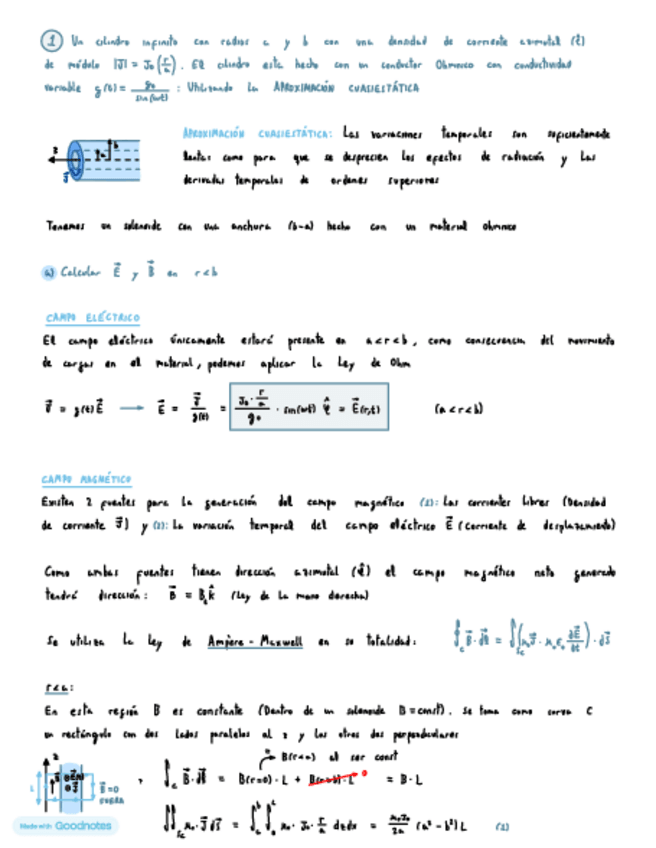 1 Un cilindro infinito con radios a y b con una densidad de corriente azimutal (φ̂)
de módulo |J| = J₀(r/a). El cilindro esta hecho con un conductor Ohmnico con conductividad
variable g(t) = g₀/sin(ωt) : Utilizando la APROXIMACIÓN CUASIESTÁTICA
APROXIMACIÓN CUASIESTÁTICA: Las variaciones temporales son suficientemente
lentas como para que se desprecien los efectos de radiación y las
derivadas temporales de ordenes superiores
z a b J
Tenemos un solenoide con una anchura (b-a) hecho con un material ohmnico
a) Calcular E⃗ y B⃗ en r<b
CAMPO ELÉCTRICO
El campo eléctrico únicamente estará presente en a<r<b, como consecuencia del movimiento
de cargas en el material, podemos aplicar la Ley de Ohm
J⃗ = g(t)E⃗ → E⃗ = J⃗/g(t) = (J₀·r/a)/g₀ · sin(ωt) φ̂ = E⃗(r,t) (a<r<b)
CAMPO MAGNÉTICO
Existen 2 fuentes para la generación del campo magnético (1): Las corrientes libres (Densidad
de corriente J⃗) y (2): La variación temporal del campo eléctrico E⃗ (Corriente de desplazamiento)
Como ambas fuentes tienen dirección azimutal (φ̂) el campo magnético neto generado
tendrá dirección: B⃗ = B_z k̂ (Ley de la mano derecha)
Se utiliza la Ley de Ampère - Maxwell en su totalidad: ∮_C B⃗·dl⃗ = ∬_Sc (μ₀J⃗ · μ₀ε₀ ∂E⃗/∂t) · dS⃗
r<a:
En esta región B es constante (Dentro de un solenoide B=const). Se toma como curva C
un rectángulo con dos lados paralelos al z y los otros dos perpendiculares
B(r<a) al ser const
∫_C B⃗·dl⃗ = B(r=0)·L + B(r>b)·L 0 = B·L
z L J B⃗=0
FUERA
∬_Sc μ₀·J⃗ dS⃗ = ∫∫ μ₀·J₀·r/a dzdx = μ₀J₀/2a (a²-b²)L (1)
Made with Goodnotes